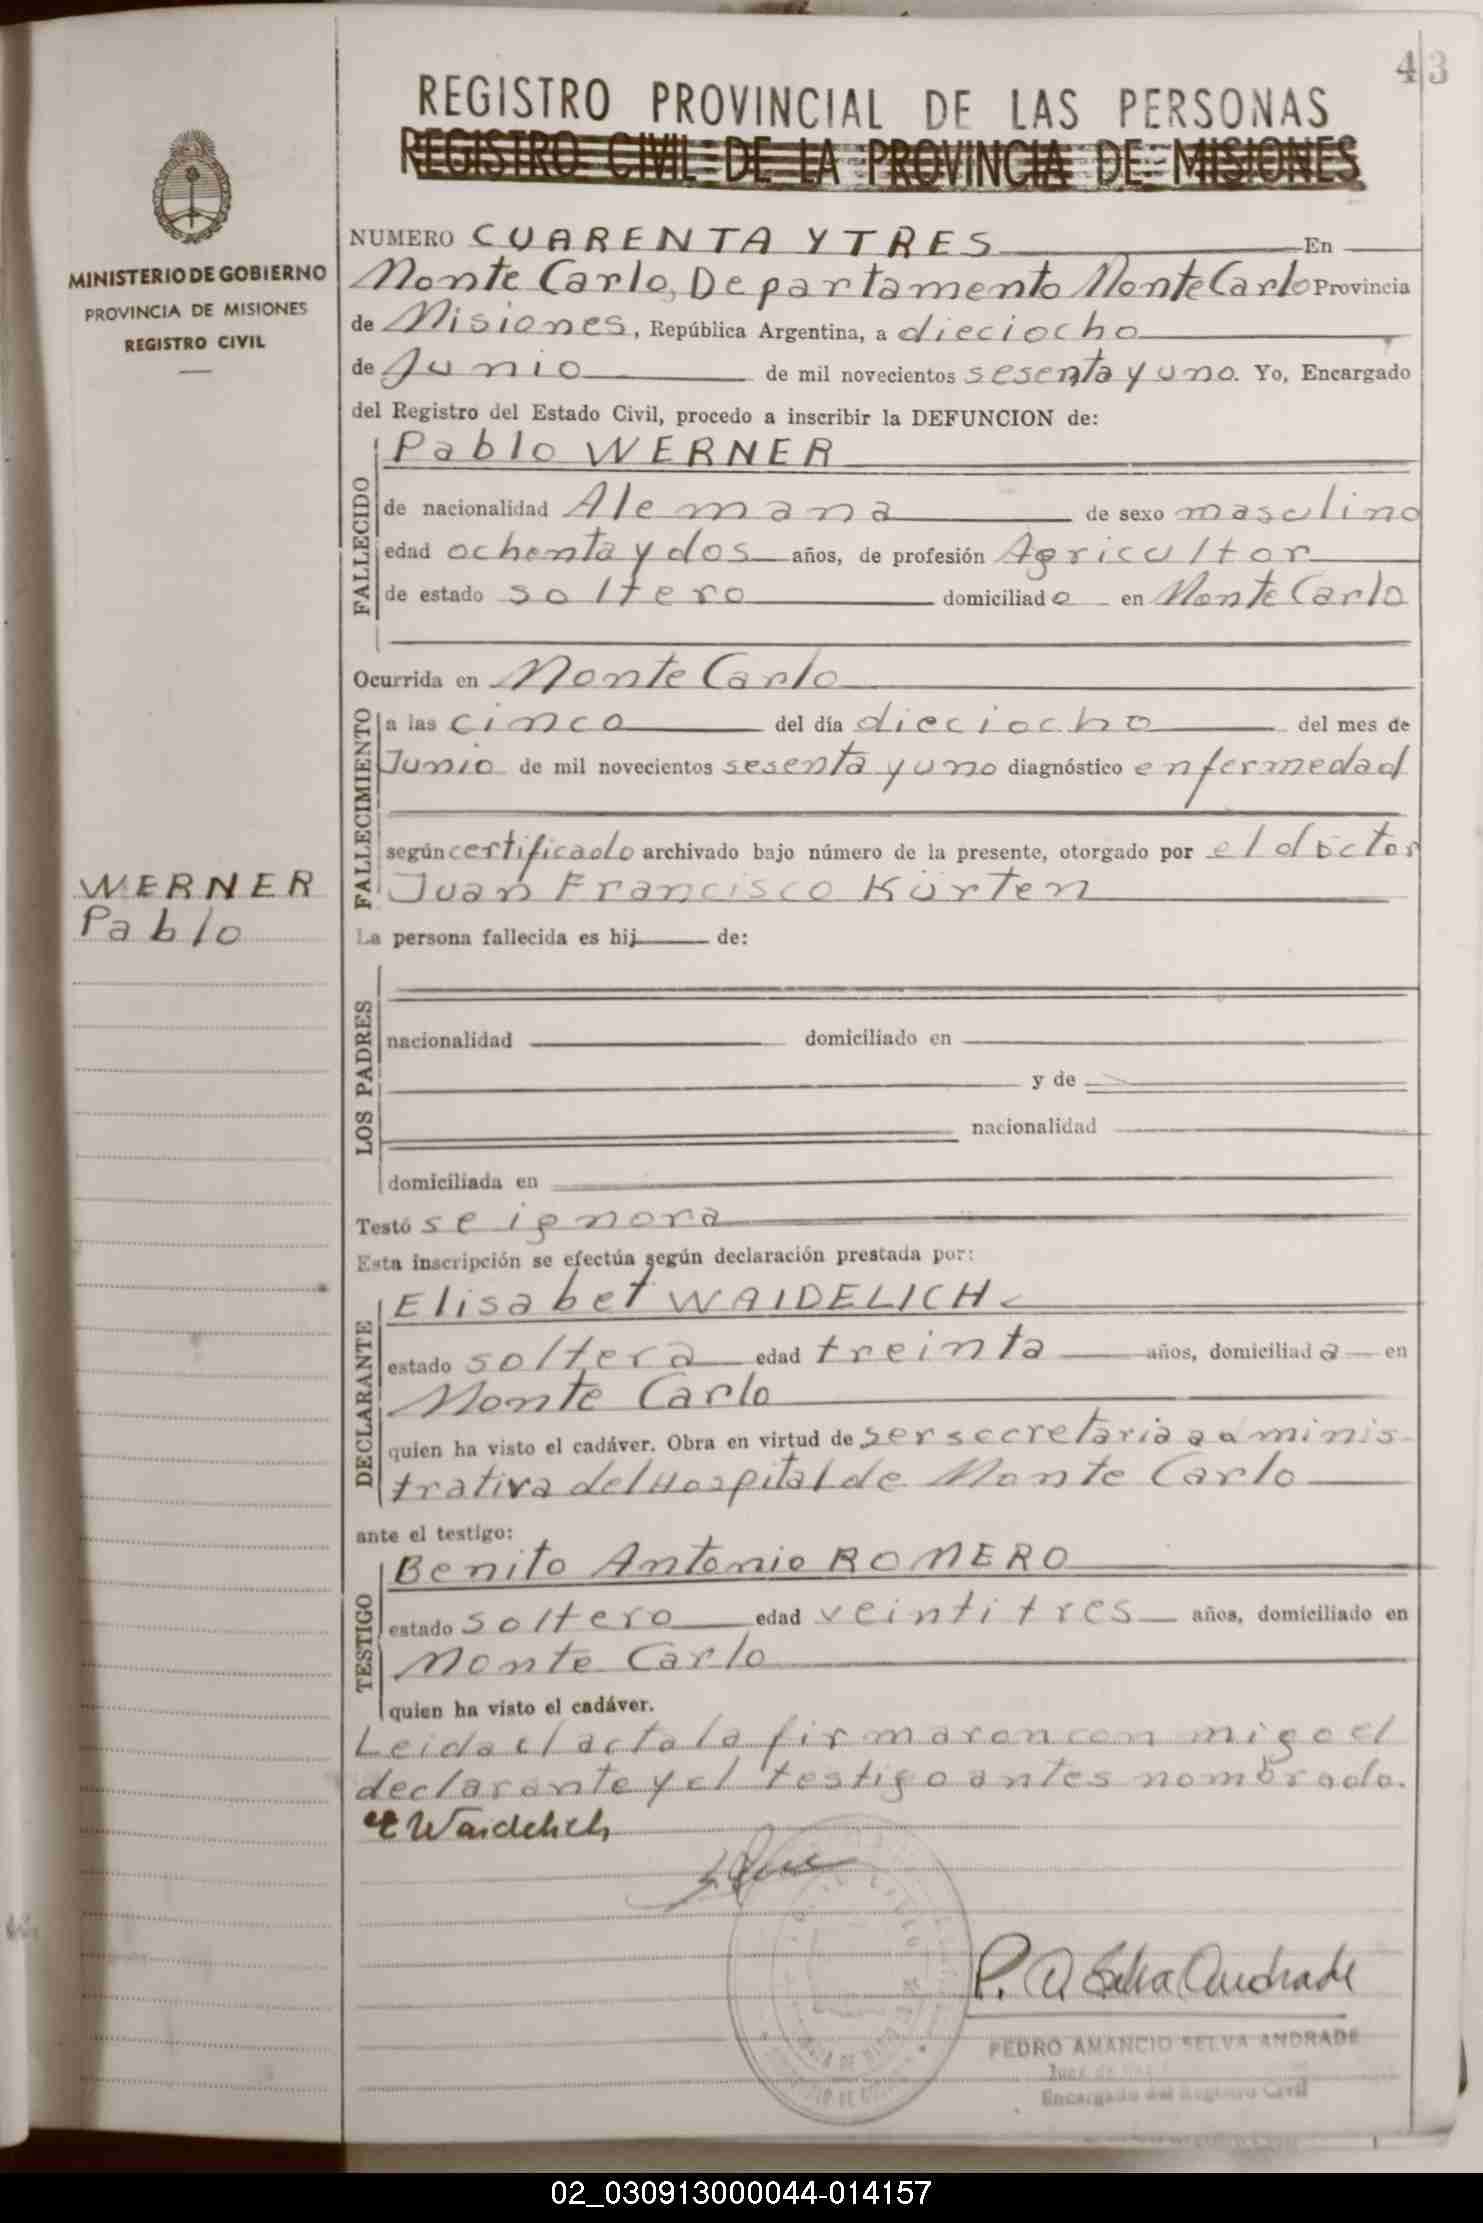 43
REGISTRO PROVINCIAL DE LAS PERSONAS
REGISTRO CIVIL DE LA PROVINCIA DE MISIONES
MINISTERIO DE GOBIERNO
PROVINCIA DE MISIONES
REGISTRO CIVIL
NUMERO CUARENTA Y TRES En
Monte Carlo, Departamento Monte Carlo Provincia
de Misiones, República Argentina, a dieciocho
de Junio de mil novecientos sesenta y uno. Yo, Encargado
del Registro del Estado Civil, procedo a inscribir la DEFUNCION de:
FALLECIDO
Pablo WERNER
de nacionalidad Alemana de sexo masculino
edad ochenta y dos años, de profesión Agricultor
de estado soltero domiciliado en Monte Carlo
Ocurrida en Monte Carlo
FALLECIMIENTO
a las cinco del día dieciocho del mes de
Junio de mil novecientos sesenta y uno diagnóstico enfermedad
según certificado archivado bajo número de la presente, otorgado por el doctor
Juan Francisco Kürten
WERNER
Pablo
La persona fallecida es hij de:
LOS PADRES
nacionalidad domiciliado en
y de
nacionalidad
domiciliada en
Testó se ignora
Esta inscripción se efectúa según declaración prestada por:
DECLARANTE
Elisabet WAIDELICH
estado soltera edad treinta años, domiciliada en
Monte Carlo
quien ha visto el cadáver. Obra en virtud de ser secretaria adminis
trativa del Hospital de Monte Carlo
ante el testigo:
TESTIGO
Benito Antonio ROMERO
estado soltero edad veintitres años, domiciliado en
Monte Carlo
quien ha visto el cadáver.
Leida el acta la firmaron con migo el
declarante y el testigo antes nombrado.
E Waidelich
P. A Selva Andrade
PEDRO AMANCIO SELVA ANDRADE
Juez de
Encargado del Registro Civil
02_030913000044-014157